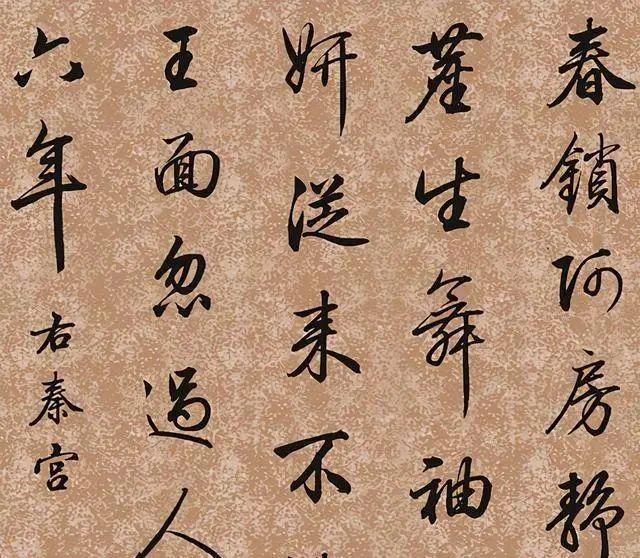 春鎖阿房靜
塵生舞袖
妍從来不
王面忽過人
六年
右秦宮